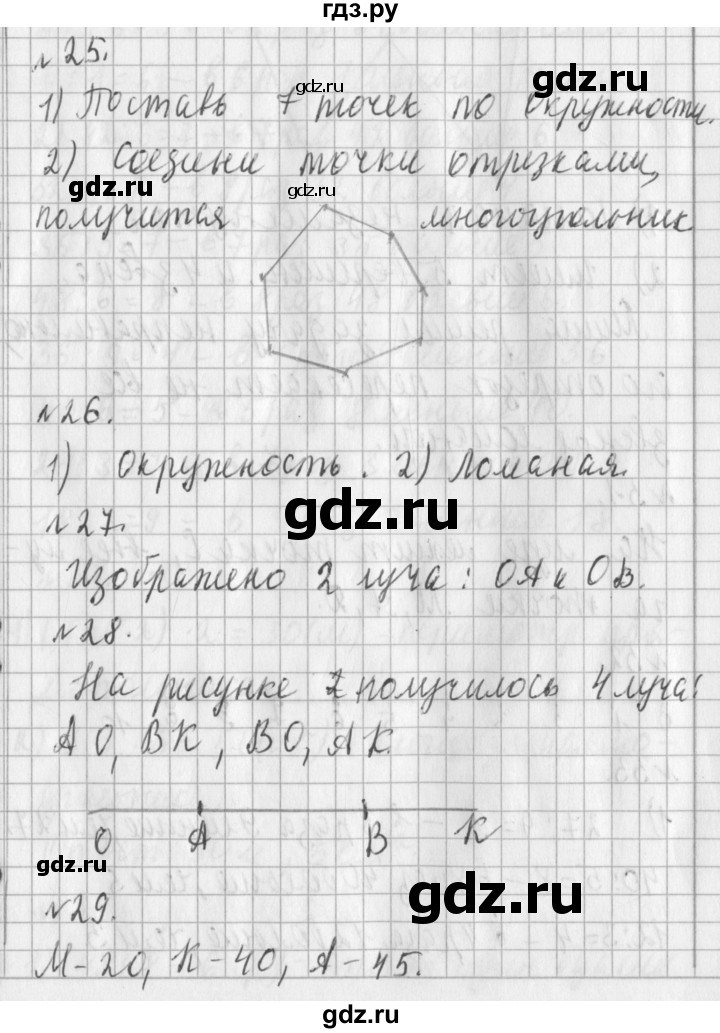 гдз.ру
№25.
1) Поставь 7 точек по окружности.
2) Соедини точки отрезками,
получится многоугольник
№26.
1) Окружность. 2) Ломаная.
№27.
Изображено 2 луча: ОА и ОВ.
№28.
На рисунке получилось 4 луча:
АО, ВК, ВО, АК.
О А В К
№29.
М-20, К-40, А-45.
gdz.ru
gdz.ru
gdz.ru
gdz.ru
gdz.ru
gdz.ru
gdz.ru
gdz.ru
gdz.ru
gdz.ru